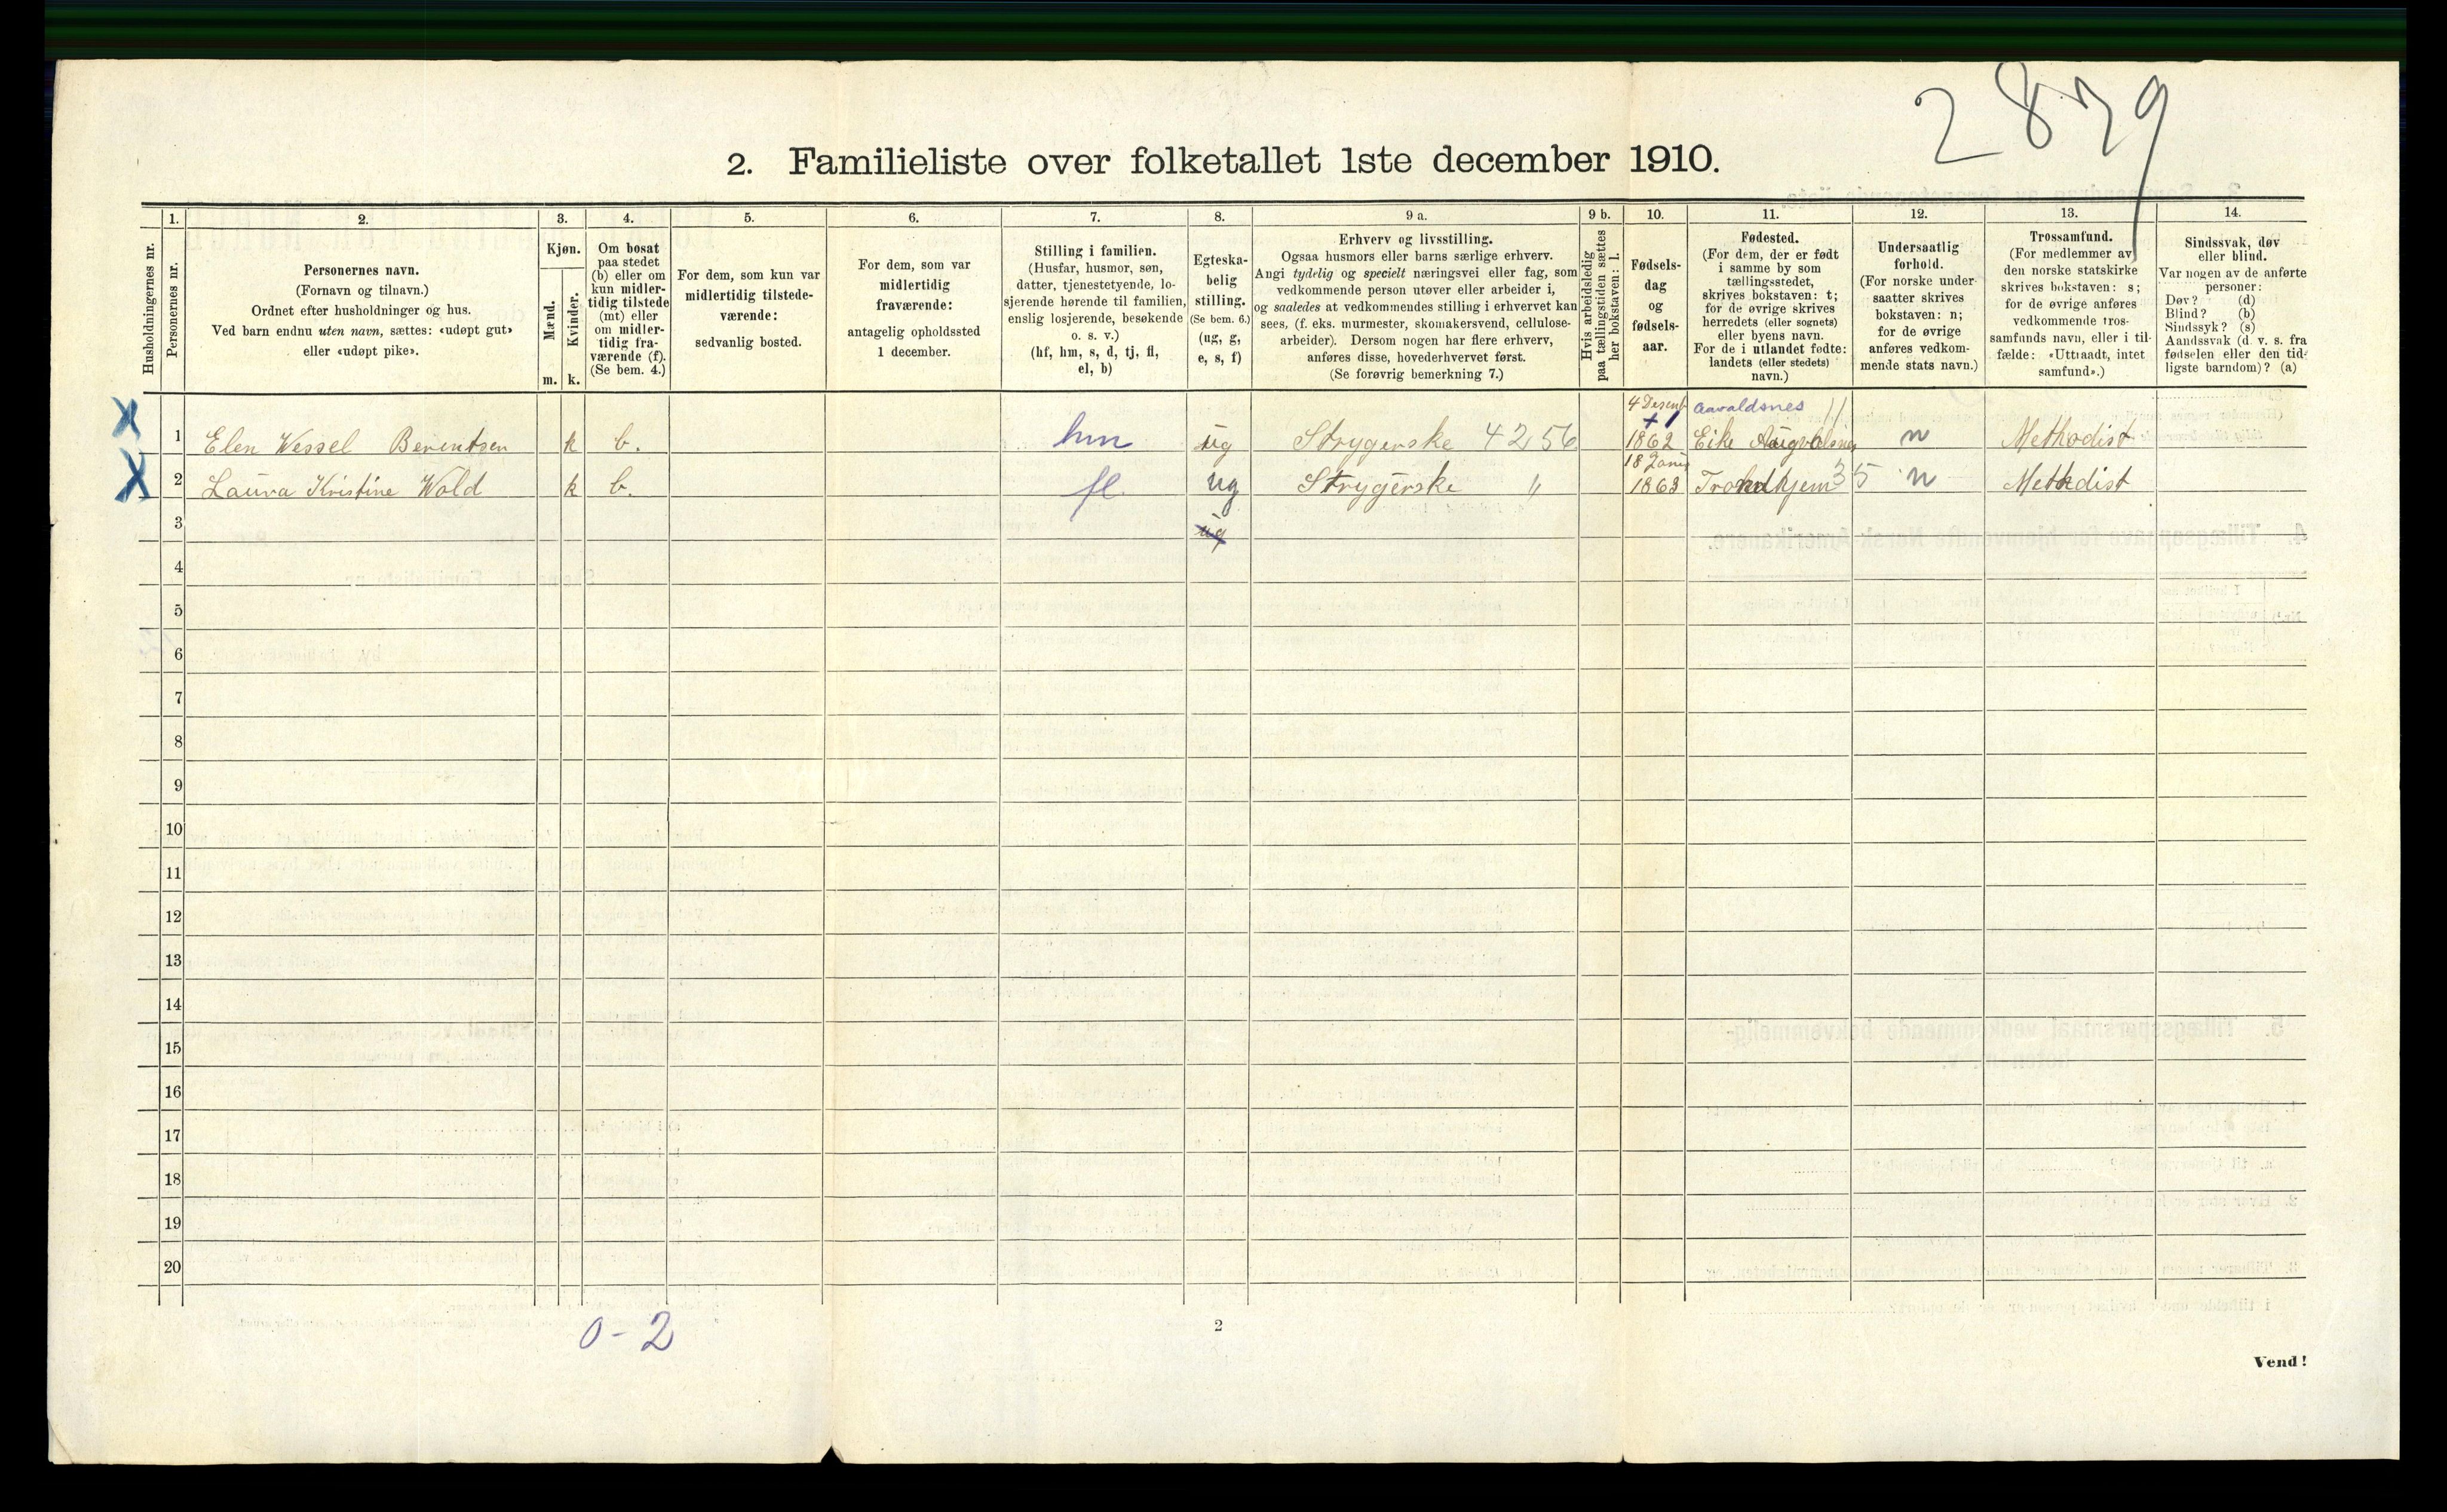 2879
2. Familieliste over folketallet 1ste december 1910.
Husholdningernes nr.
1. Personernes nr.
2. Personernes navn.
(Fornavn og tilnavn.)
Ordnet efter husholdninger og hus.
Ved barn endnu uten navn, sættes: «udøpt gut»
eller «udøpt pike».
3. Kjøn.
Mænd. Kvinder.
m. k.
4. Om bosat
paa stedet
(b) eller om
kun midler-
tidig tilstede
(mt) eller
om midler-
tidig fra-
værende (f).
(Se bem. 4.)
5. For dem, som kun var
midlertidig tilstede-
værende:
sedvanlig bosted.
6. For dem, som var
midlertidig
fraværende:
antagelig opholdssted
1 december.
7. Stilling i familien.
(Husfar, husmor, søn,
datter, tjenestetyende, lo-
sjerende hørende til familien,
enslig losjerende, besøkende
o. s. v.)
(hf, hm, s, d, tj, fl,
el, b)
8. Egteska-
belig
stilling.
(Se bem. 6.)
(ug, g,
e, s, f)
9 a. Erhverv og livsstilling.
Ogsaa husmors eller barns særlige erhverv.
Angi tydelig og specielt næringsvei eller fag, som
vedkommende person utøver eller arbeider i,
og saaledes at vedkommendes stilling i erhvervet kan
sees, (f. eks. murmester, skomakersvend, cellulose-
arbeider). Dersom nogen har flere erhverv,
anføres disse, hovederhvervet først.
(Se forøvrig bemerkning 7.)
9 b. Hvis arbeidsledig
paa tællingstiden sættes
her bokstaven: l.
10. Fødsels-
dag
og
fødsels-
aar.
11. Fødested.
(For dem, der er født
i samme by som
tællingsstedet,
skrives bokstaven: t;
for de øvrige skrives
herredets (eller sognets)
eller byens navn.
For de i utlandet fødte:
landets (eller stedets)
navn.)
12. Undersaatlig
forhold.
(For norske under-
saatter skrives
bokstaven: n;
for de øvrige
anføres vedkom-
mende stats navn.)
13. Trossamfund.
(For medlemmer av
den norske statskirke
skrives bokstaven: s;
for de øvrige anføres
vedkommende tros-
samfunds navn, eller i til-
fælde: «Uttraadt, intet
samfund».)
14. Sindssvak, døv
eller blind.
Var nogen av de anførte
personer:
Døv? (d)
Blind? (b)
Sindssyk? (s)
Aandssvak (d. v. s. fra
fødselen eller den tid-
ligste barndom)? (a)
4 Desemb Avaldsnes 11
X 1 Elen Wessel Berentsen k b. hm ug Strygerske 4256 +1 1862 Eike n Methodist
18 Janu
X 2 Laura Kristine Wold k b. fl. ug Strygerske " 1863 Trondhjem 35 n Methdist
3 ug
4
5
6
7
8
9
10
11
12
13
14
15
16
17
18
19
20
0-2
2
Vend!